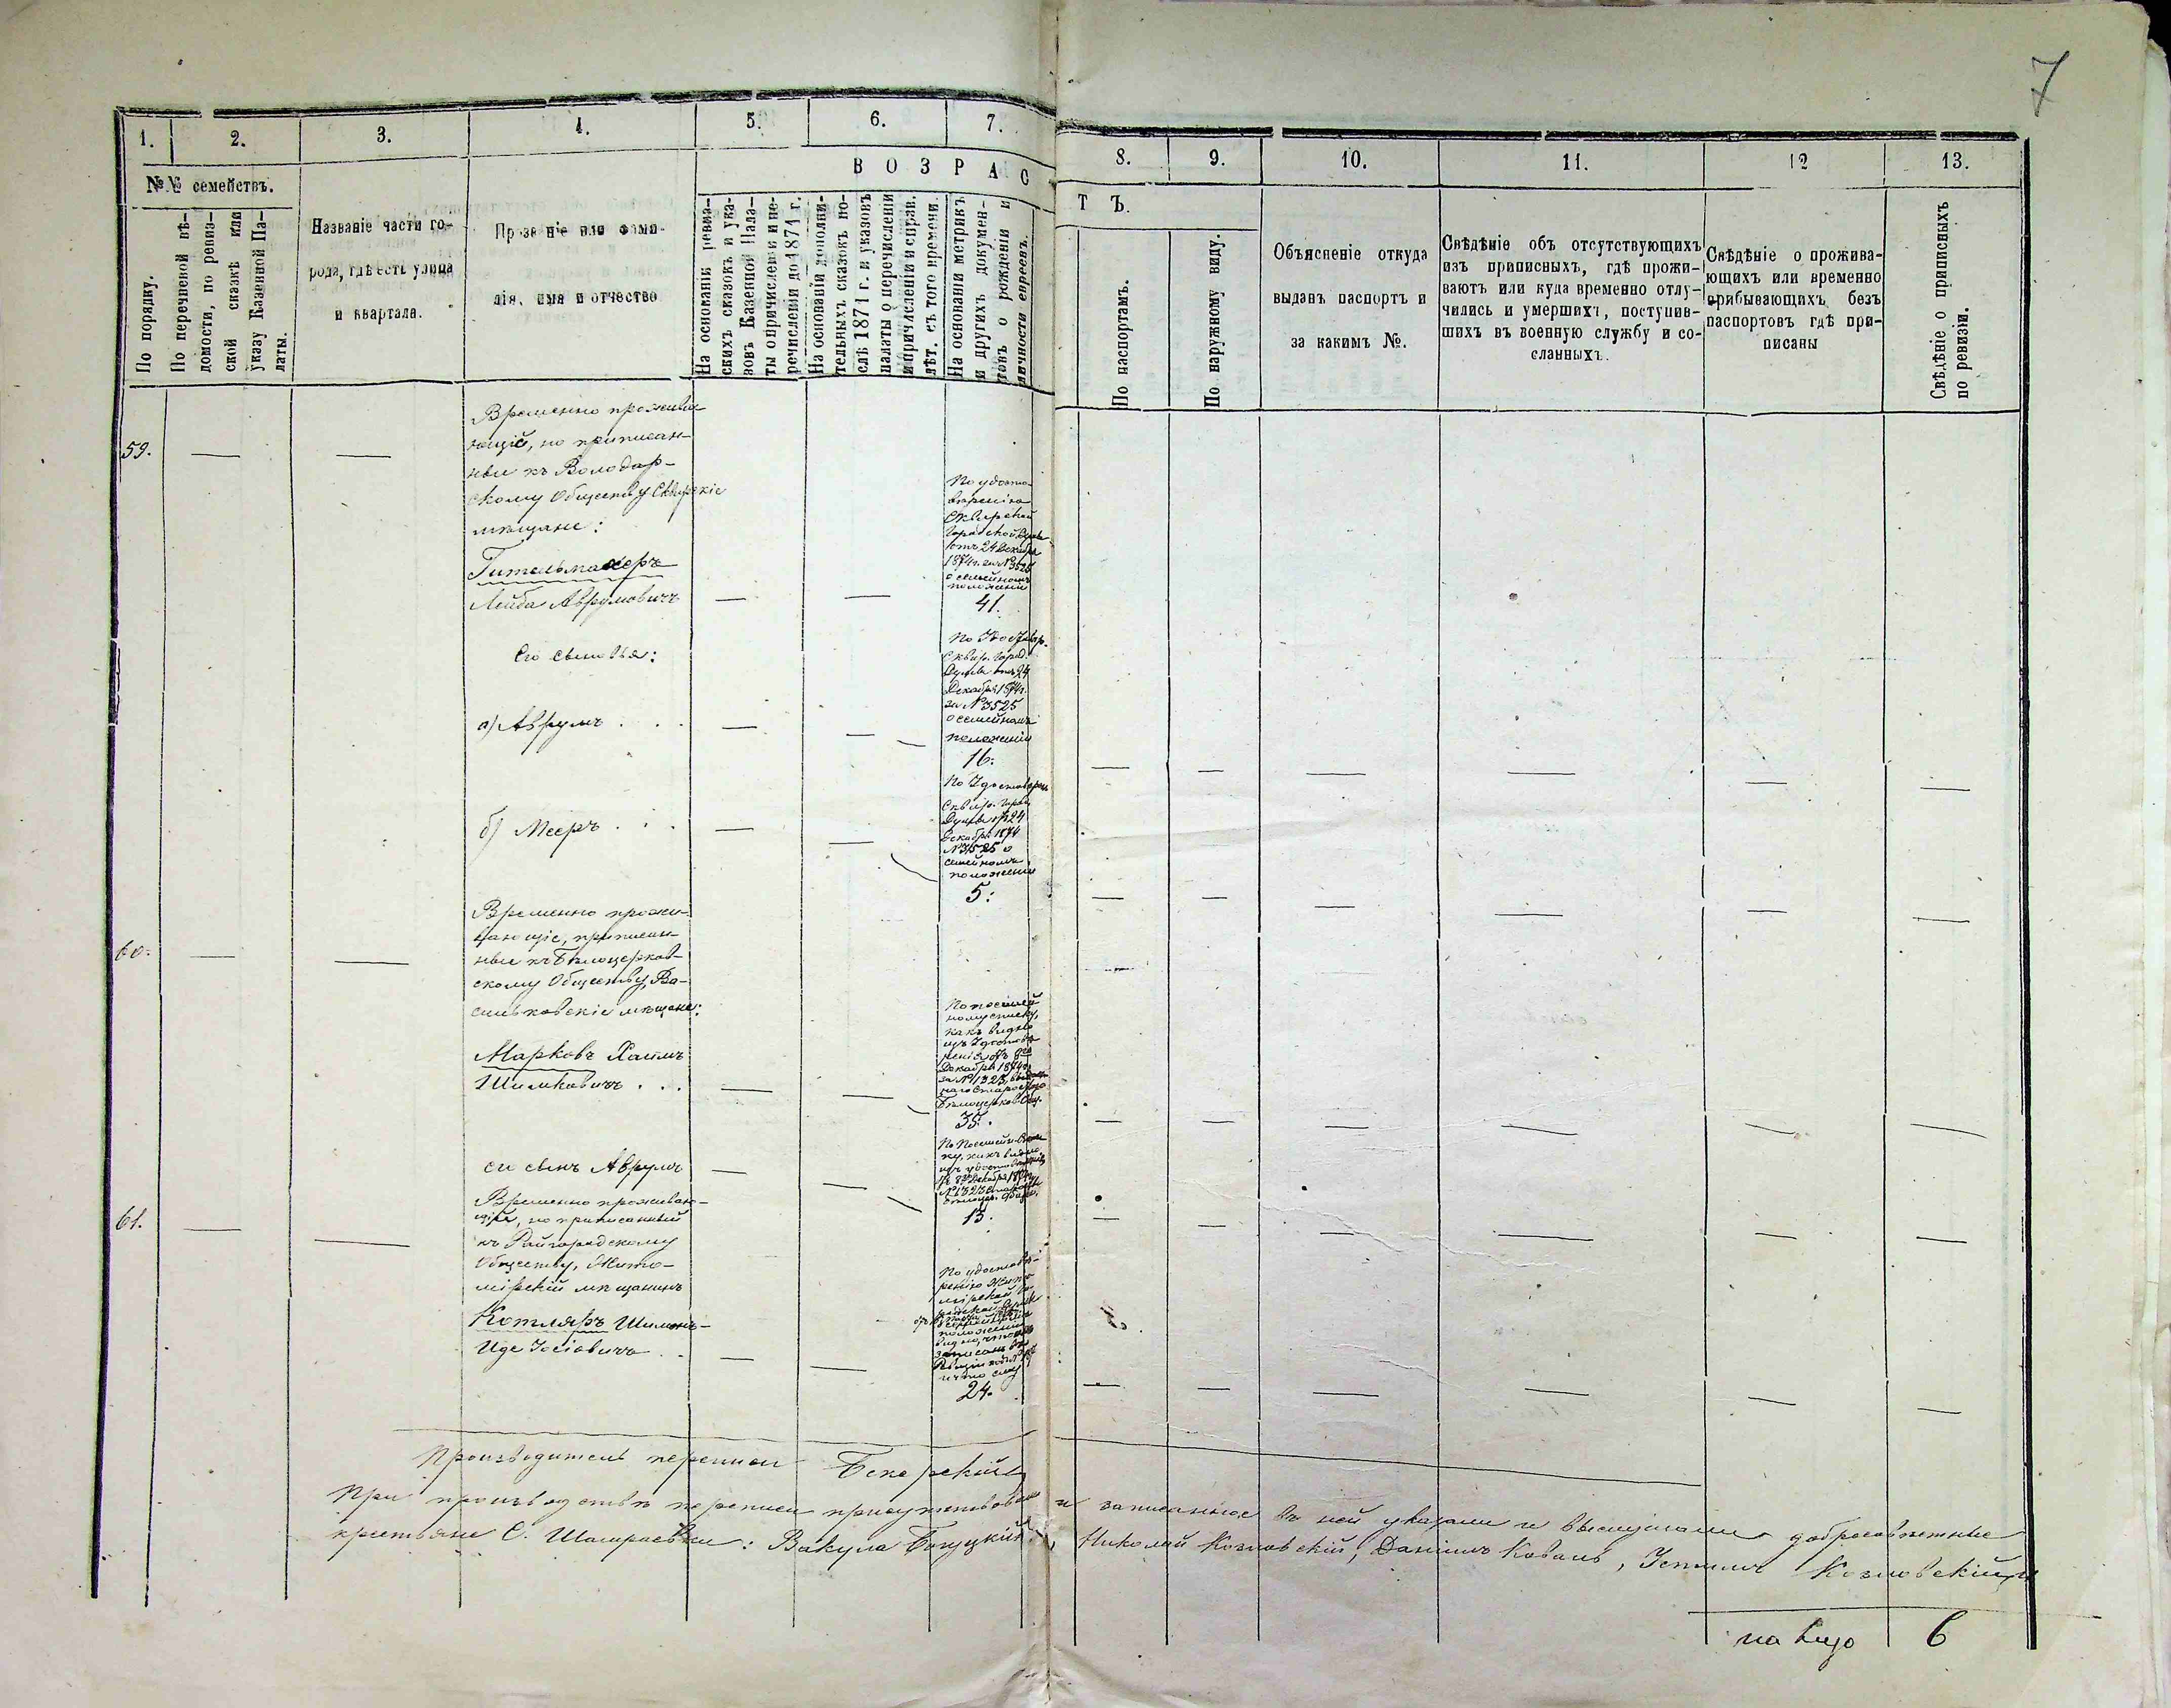 7
1.
2.
3.
4.
5.
6.
7.
8.
9.
10.
11.
12
13.
№№ семействъ.
ВОЗРАС
ТЪ.
По порядку.
По перечневой вѣ-
домости, по ревиз-
ской сказкѣ или
указу Казенной Па-
латы.
Названіе части го-
рода, гдѣ есть улица
и квартала.
Прозваніе или фами-
лія, имя и отчество
На основаніи ревиз-
скихъ сказокъ и ука-
зовъ Казенной Пала-
ты о причисленіи и пе-
речисленіи до 1871 г.
На основаніи дополни-
тельныхъ сказокъ по-
слѣ 1871 г. и указовъ
палаты о перечисленіи
и причисленіи и справ.
лѣт. съ того времени.
На основаніи метрикъ
и другихъ докумен-
товъ о рожденіи и
личности евреевъ.
По паспортамъ.
По наружному виду.
Объясненіе откуда
выданъ паспортъ и
за какимъ №.
Свѣдѣніе объ отсутствующихъ
изъ приписныхъ, гдѣ прожи-
ваютъ или куда временно отлу-
чились и умершихъ, поступив-
шихъ въ военную службу и со-
сланныхъ.
Свѣдѣніе о прожива-
ющихъ или временно
прибывающихъ безъ
паспортовъ гдѣ при-
писаны
Свѣдѣніе о приписныхъ
по ревизіи.
59.
Временно прожива
ющіе, но приписан-
ные къ Володар-
скому Обществу Сквирскіе
мѣщане:
Гительмахеръ
Лейба Аврумовичъ
По удосто-
вѣренію
Сквирской
Городской Думы
отъ 24 Декабря
1874 г. за № 3525
о семейномъ
положеніи
41.
Его сыновья:
а) Аврумъ . . .
По Удостовѣр.
Сквир. Город.
Думы отъ 24
Декабря 1874 г.
за № 3525
о семейномъ
положеніи
16.
б) Мееръ . . .
По Удостовѣрен
Сквир. Город.
Думы отъ 24
Декабря 1874
№ 3525 о
семейномъ
положеніи
5.
60.
Временно прожи-
вающіе, приписан-
ные къ Бѣлоцерков-
скому Обществу, Ва-
сильковскіе мѣщане:
Марковъ Хаимъ
Шимковичъ . . .
По посемей
ному списку,
какъ видно
изъ Удостовѣ
ренія отъ 8го
Декабря 1874 г.
за № 1323
Бѣлоцерков. Общ.
35.
его сынъ Аврумъ
По Посемейн.
ку, какъ видно
изъ удостовѣренія
8го Декабря 1874
№ 1323
13.
61.
Временно прожива-
ющій, но приписанный
къ Райгородскому
Обществу, Жито-
мірскій мѣщанинъ
Котляръ Шимонъ-
Иде Іосіовичъ . .
По удостовѣ-
ренію Жито
мірской Го
родской
положеніи
видно, что онъ
записанъ въ
24.
Производитель переписи Бекерскій
При производствѣ переписи присутствовали и записанное въ ней указали и выслушали добросовѣстные
крестьяне С. Шамраевки: Вакула Богуцкій, Николай Козловскій, Даніилъ Коваль, Козловскій и
на лицо 6